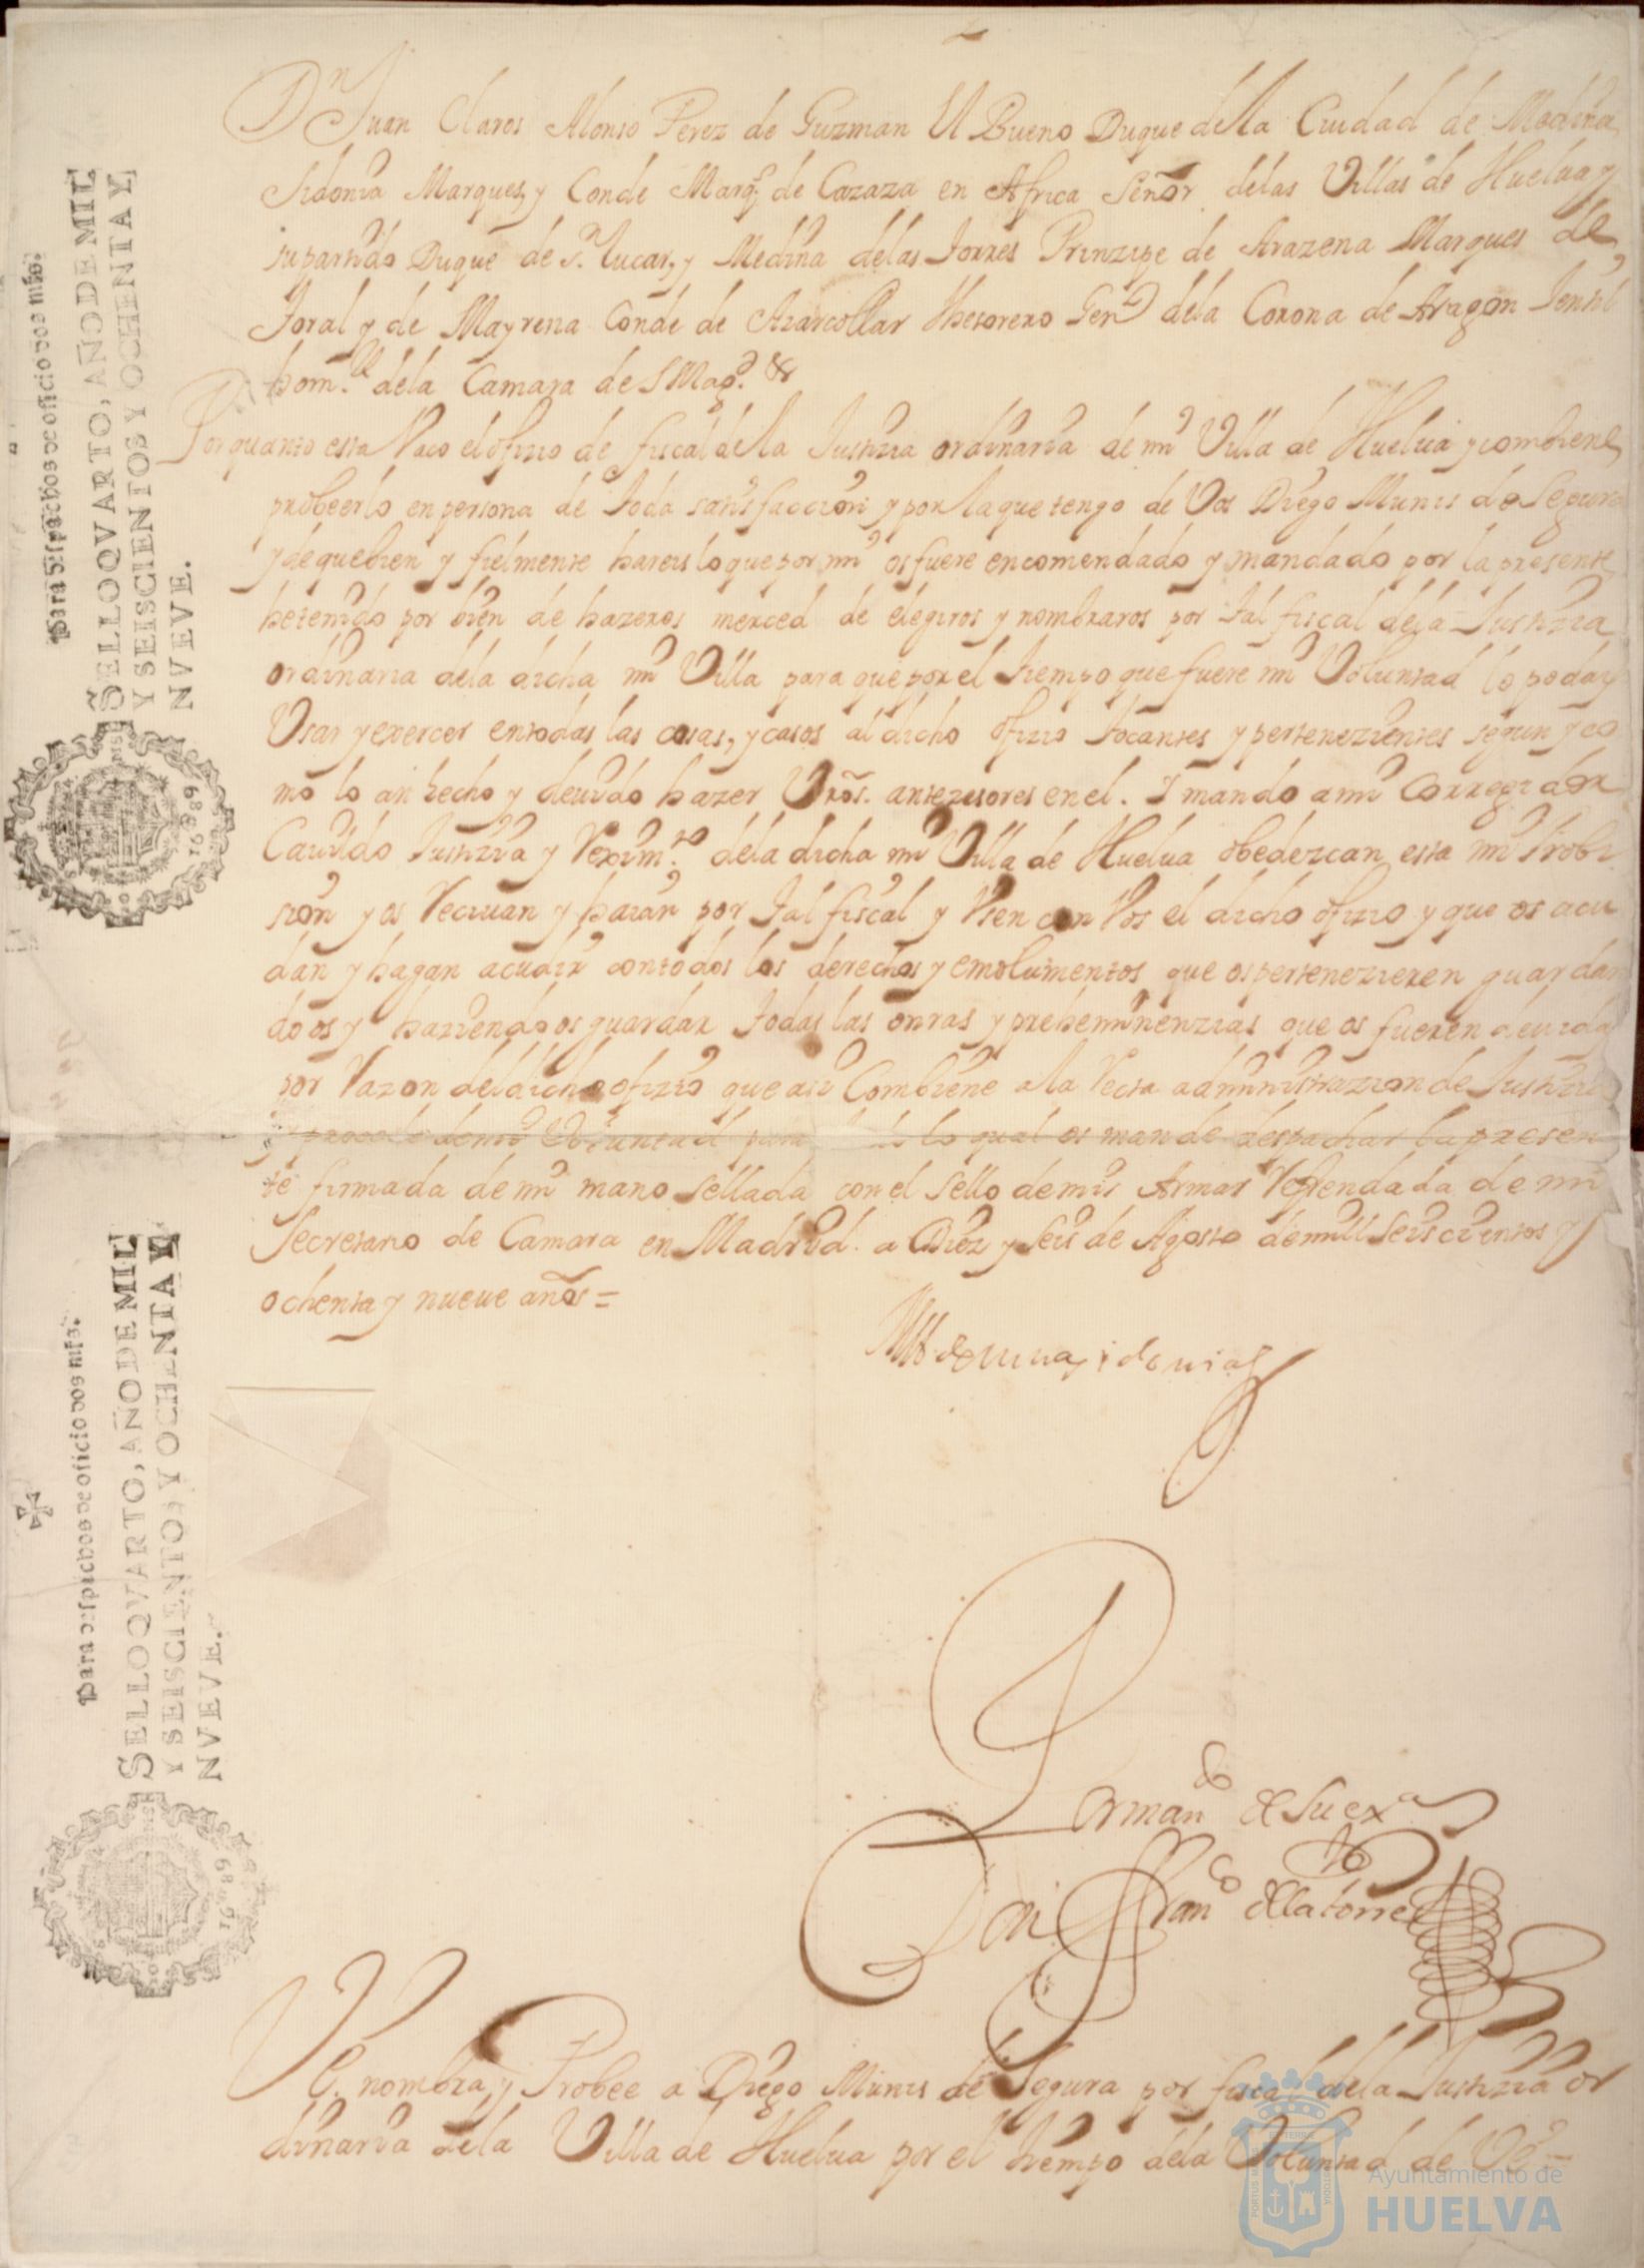 Dn Juan Claros Alonso Perez de Guzman El Bueno Duque de la Ciudad de Medina
Sidonia Marques, y Conde Marqs de Cazaza en Africa Señor delas Villas de Huelua y
su partido Duque de Sn lucar, y Medina delas torres Prinzipe de Arazena Marques de
Toral y de Mayrena Conde de Azarcollar thesorero Genl dela Corona de Aragon Jentil
hom.e dela Camara de S Magd. &
Por quanto esta Vaco el ofizio de fiscal de la Justizia ordinaria de mi Villa de Huelua y combiene
probeerlo en persona de toda satisfaccion y por la que tengo de Vos Diego Munis de Segura
y de que bien y fielmente hareis lo que por mi os fuere encomendado y mandado por la presente
he tenido por bien de hazeros merced de elegiros y nombraros por tal fiscal dela Justizia
ordinaria dela dicha mi Villa para que por el tiempo que fuere mi Voluntad lo podais
Usar y exercer en todas las cosas, y casos al dicho ofizio tocantes y pertenezientes segun y co
mo lo an hecho y deuido hazer Vros. antezesores en el. Y mando a mi Corregidor
Cauildo Justizia y Rexim.to dela dicha mi Villa de Huelua obedezcan esta mi Probi
sion y os Reciuan y haian por tal fiscal y Vsen con Vos el dicho ofizio y que os acu
dan y hagan acudir con todos los derechos y emolumentos que os pertenezieren guardan
do os y haziendo os guardar todas las onras y preheminenzias que os fueren deuidas
por Razon del dicho ofizio que asi Combiene a la Recta administrazion de Justizia
y prozede de mi Voluntad para lo qual os mande despachar la presen
te firmada de mi mano sellada con el sello de mis Armas Refrendada de mi
Secretario de Camara en Madrid. a Diez y seis de Agosto de mill seiscientos y
ochenta y nueue años =
el Duque de Medina sidonia
Por mando del Duque mi sr
Don Franco de la torre
V. E. nombra, y Probee a Diego Munis de Segura por fiscal dela Justizia or
dinaria dela Villa de Huelua por el tiempo dela Voluntad de VE
Para despachos de oficio dos mrs.
SELLO QVARTO, AÑO DE MIL
Y SEISCIENTOS Y OCHENTA Y
NVEVE.
1689
Para despachos de oficio dos mrs.
SELLO QVARTO, AÑO DE MIL
Y SEISCIENTOS Y OCHENTA Y
NVEVE.
1689
Ayuntamiento de
HUELVA